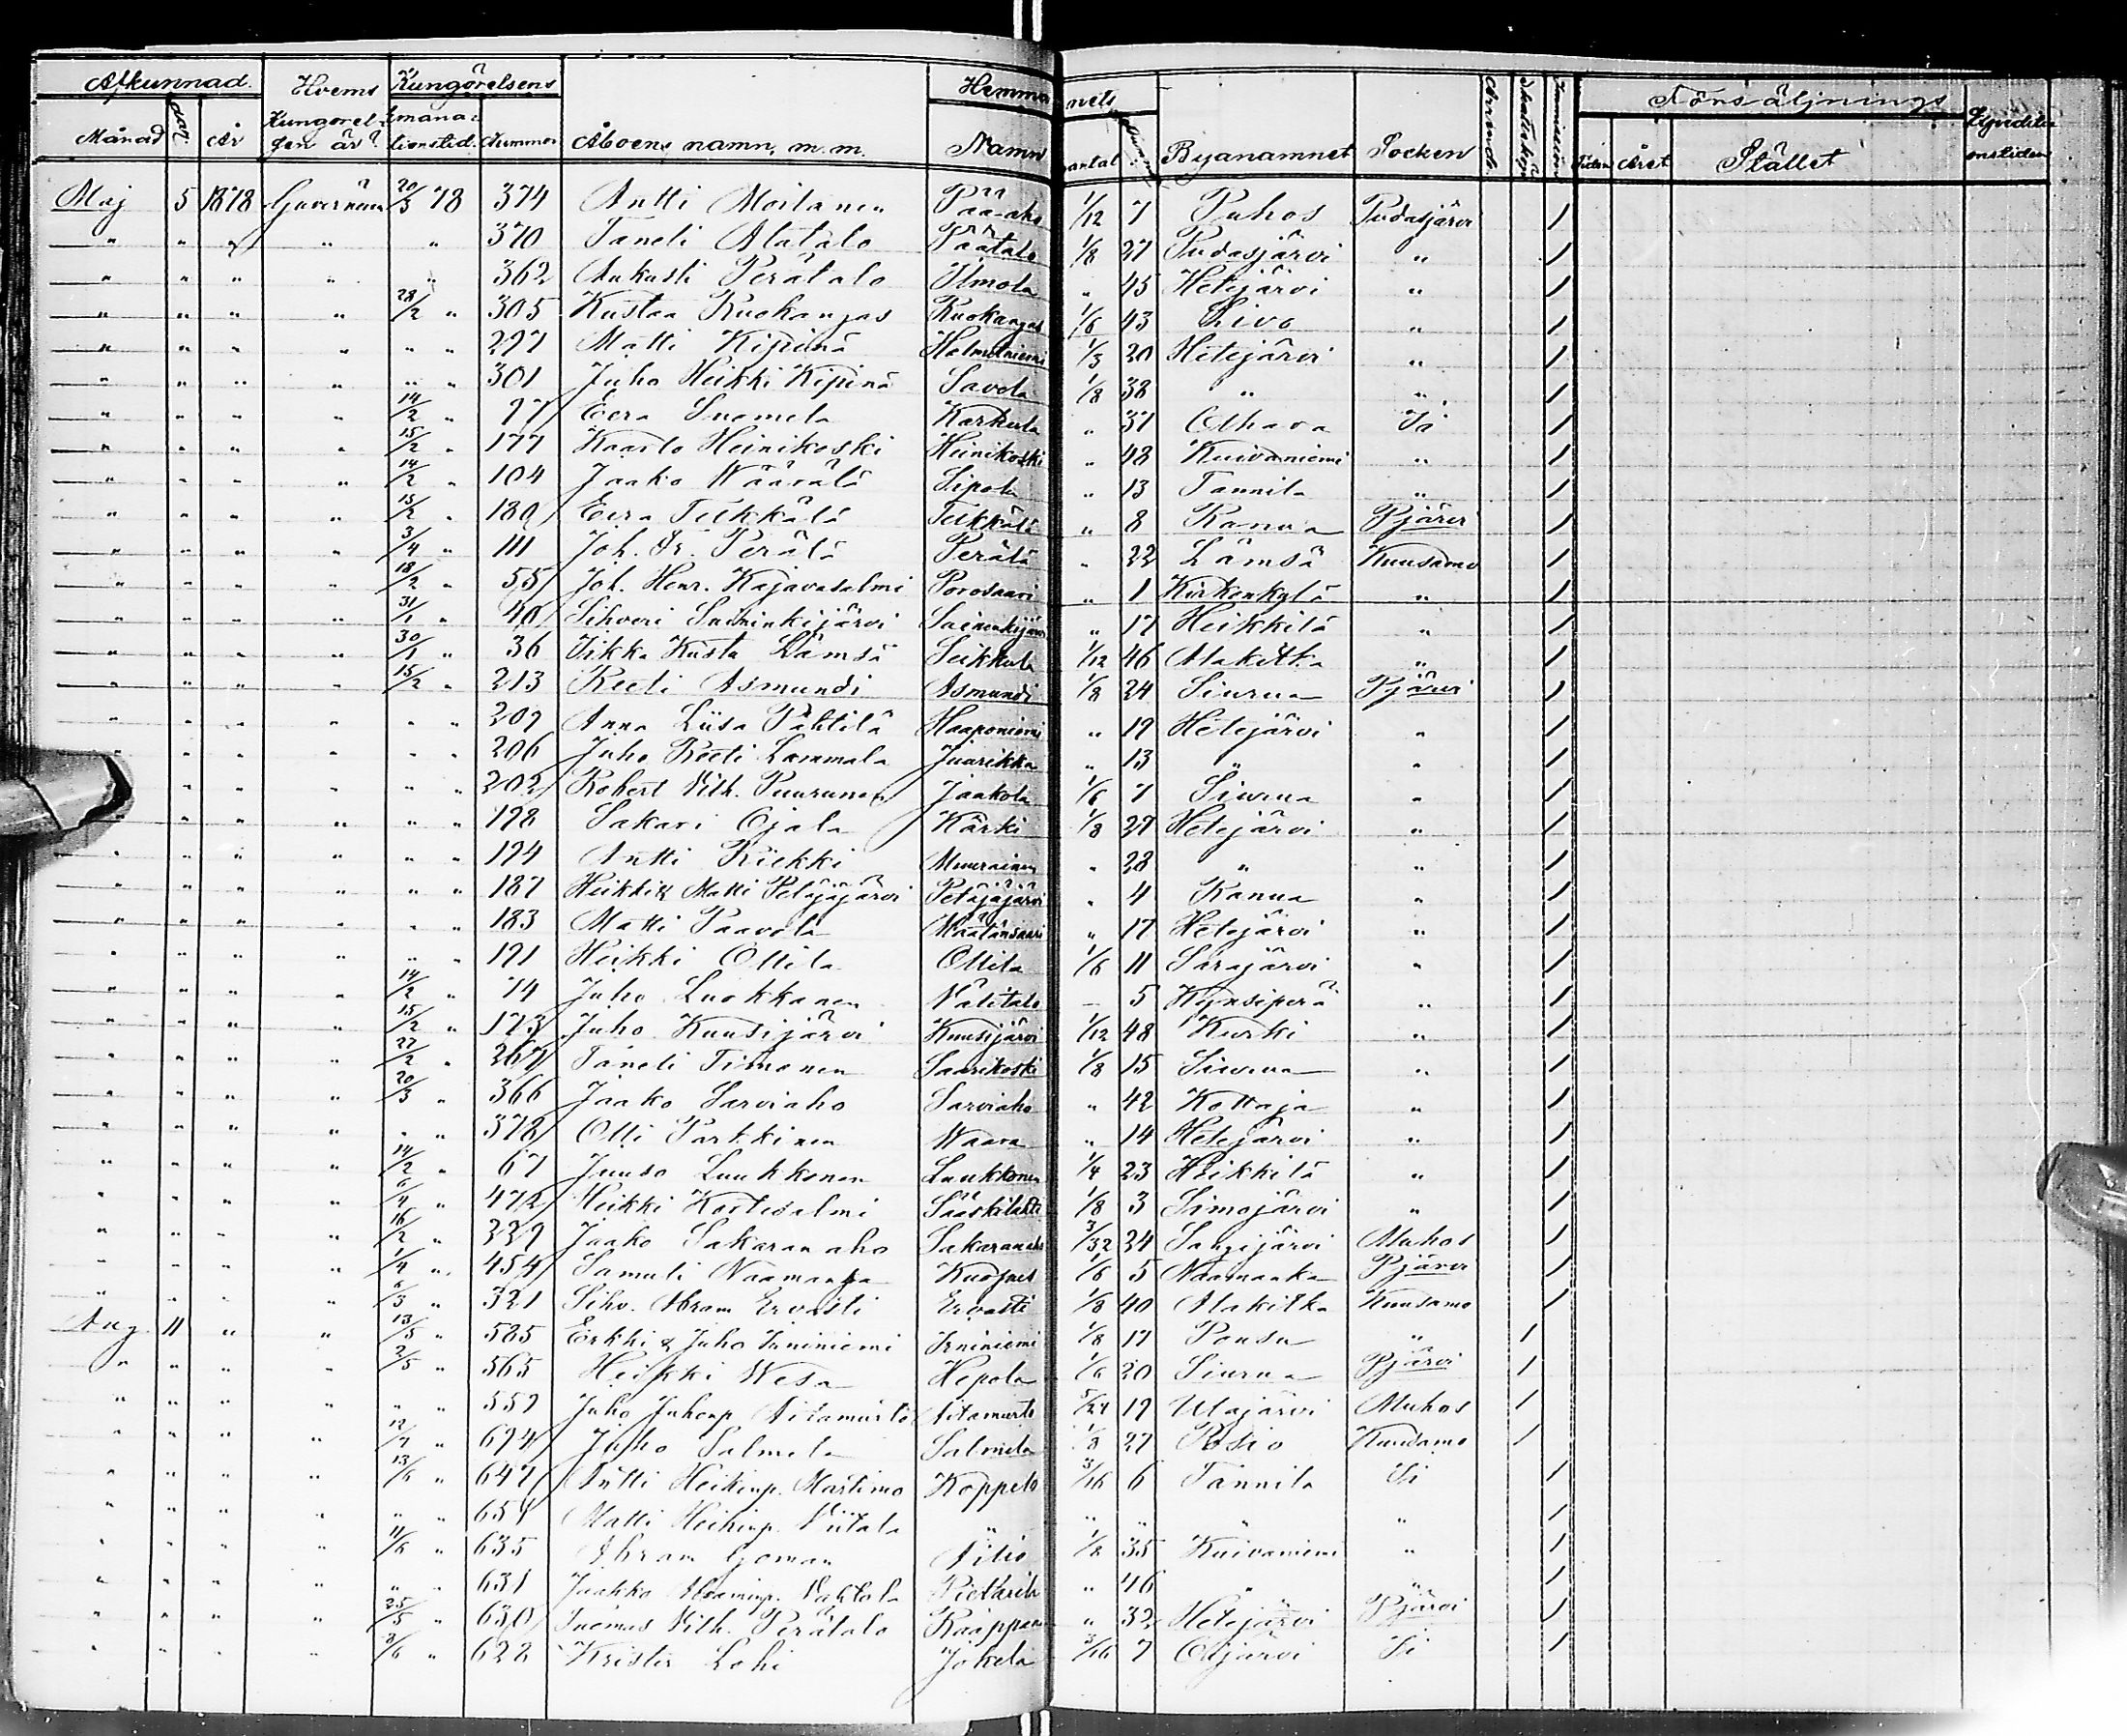 Afkunnad. Hvems Kungörelsens Hemma nets Försäljnings
Månad dag År Kungörelsen är? Emanationstid. Nummer Åboens namn, m.m. Namn mantal Nummer Byanamnet Socken Arrende Immission Tiden Året Stället Expeditionstiden
Maj 5 1878 Guvernörens 20/3 78 374 Antti Moilanen Pääaho 1/12 7 Puhos Pudasjärvi /
" " " " " 370 Taneli Alatalo Päätalo 1/8 27 Pudasjärvi " /
" " " " " 362 Aukusti Perätalo Ilmola " 45 Hetejärvi " /
" " " " 28/2 " 305 Kustaa Ruokangas Ruokangas 1/6 43 Livo " /
" " " " " " 297 Matti Kipinä Halmetniemi 1/3 20 Hetejärvi " /
" " " " " " 301 Juho Heikki Kipinä Savola 1/8 38 " " /
" " " " 14/2 " 97 Eera Suomela Karkula " 37 Olhava Ii /
" " " " 15/2 " 177 Kaarlo Heinikoski Heinikoski " 48 Kuivaniemi " /
" " " " 14/2 " 104 Jaako Määrälä Sipola " 13 Tannila " /
" " " " 15/2 " 180 Eera Telkkälä Telkkälä " 8 Ranua Pjärvi /
" " " " 3/4 " 111 Joh. Fr. Perälä Perälä " 22 Lämsä Kuusamo /
" " " " 18/2 " 55 Joh. Henr. Kajavasalmi Porosaari " 1 Kirkonkylä " /
" " " " 31/1 " 40 Sihveri Suininkijärvi Suininkijärvi " 17 Heikkilä " /
" " " " 30/1 " 36 Iikka Kusta Lämsä Seikkula 1/12 46 Alakitka " /
" " " " 15/2 " 213 Reeti Asmundi Asmundi 1/8 24 Siurua Pjärvi /
" " " " " " 209 Anna Liisa Pähtilä Haaponiemi " 19 Hetejärvi " /
" " " " " " 206 Juho Reeti Lammala Juurikka " 13 " " /
" " " " " 202 Robert Vilh. Puurunen Jaakola 1/6 7 Siurua " /
" " " " " " 198 Sakari Ojala Kärki 1/8 27 Hetejärvi " /
" " " " " " 194 Antti Riekki Muurainen " 28 " " /
" " " " " " 187 Heikki & Matti Petäjäjärvi Petäjäjärvi " 4 Ranua " /
" " " " " " 183 Matti Paavola Määtänsaari " 17 Hetejärvi " /
" " " " " " 191 Heikki Ollila Ollila 1/6 11 Sarajärvi " /
" " " " 14/2 " 74 Juho Luokkanen Välitalo — 5 Kynsiperä " /
" " " " 15/2 " 173 Juho Kuusijärvi Kuusijärvi 1/12 48 Kurki " /
" " " " 27/2 " 267 Taneli Timonen Saarikoski 1/8 15 Siurua " /
" " " " 20/3 " 366 Jaako Sarviaho Sarviaho " 42 Kollaja " /
" " " " " " 378 Olli Parkkinen Waara " 14 Hetejärvi " /
" " " " 14/2 " 67 Juuso Luukkonen Luukkonen 1/4 23 Heikkilä " /
" " " " 6/4 " 472 Heikki Kortesalmi Sääskilahti 1/8 3 Simojärvi " /
" " " " 16/2 " 239 Jaako Sakaranaho Sakaranaho 3/32 24 Sangijärvi Muhos /
" " " " 1/4 " 454 Samuli Naamanka 1/6 5 Naamanka Pjärvi /
" " " " 6/3 " 321 Sihv. Abram Ervasti Ervasti 1/8 40 Alakitka Kuusamo /
Aug. 11 " " 13/5 " 585 Erkki & Juho Irniniemi Irniniemi 1/8 17 Pousu " /
" " " " 2/5 " 565 Heikki Wesa Hepola 1/6 20 Siurua Pjärvi /
" " " " " " 559 Juho Juhonp. Aitamurto Aitamurto 5/24 19 Utajärvi Muhos /
" " " " " 694 Juho Salmela Salmela 1/8 27 Posio Kuusamo /
" " " " 13/6 " 647 Antti Heikinp. Martimo Koppelo 3/16 6 Tannila Ii /
" " " " " " 654 Matti Heikinp. Viitala " " " " " /
" " " " 11/6 " 635 Abram Goman 1/8 35 Kuivaniemi " /
" " " " " " 631 Jaakko Abraminp. Vahtola Pietarila " 46 " " /
" " " " 25/5 " 630 Tuomas Vilh. Perätalo Kääppä " 32 Hetejärvi Pjärvi /
" " " " 3/6 " 628 Krister Lohi Jokela 3/16 7 Oijärvi Ii /